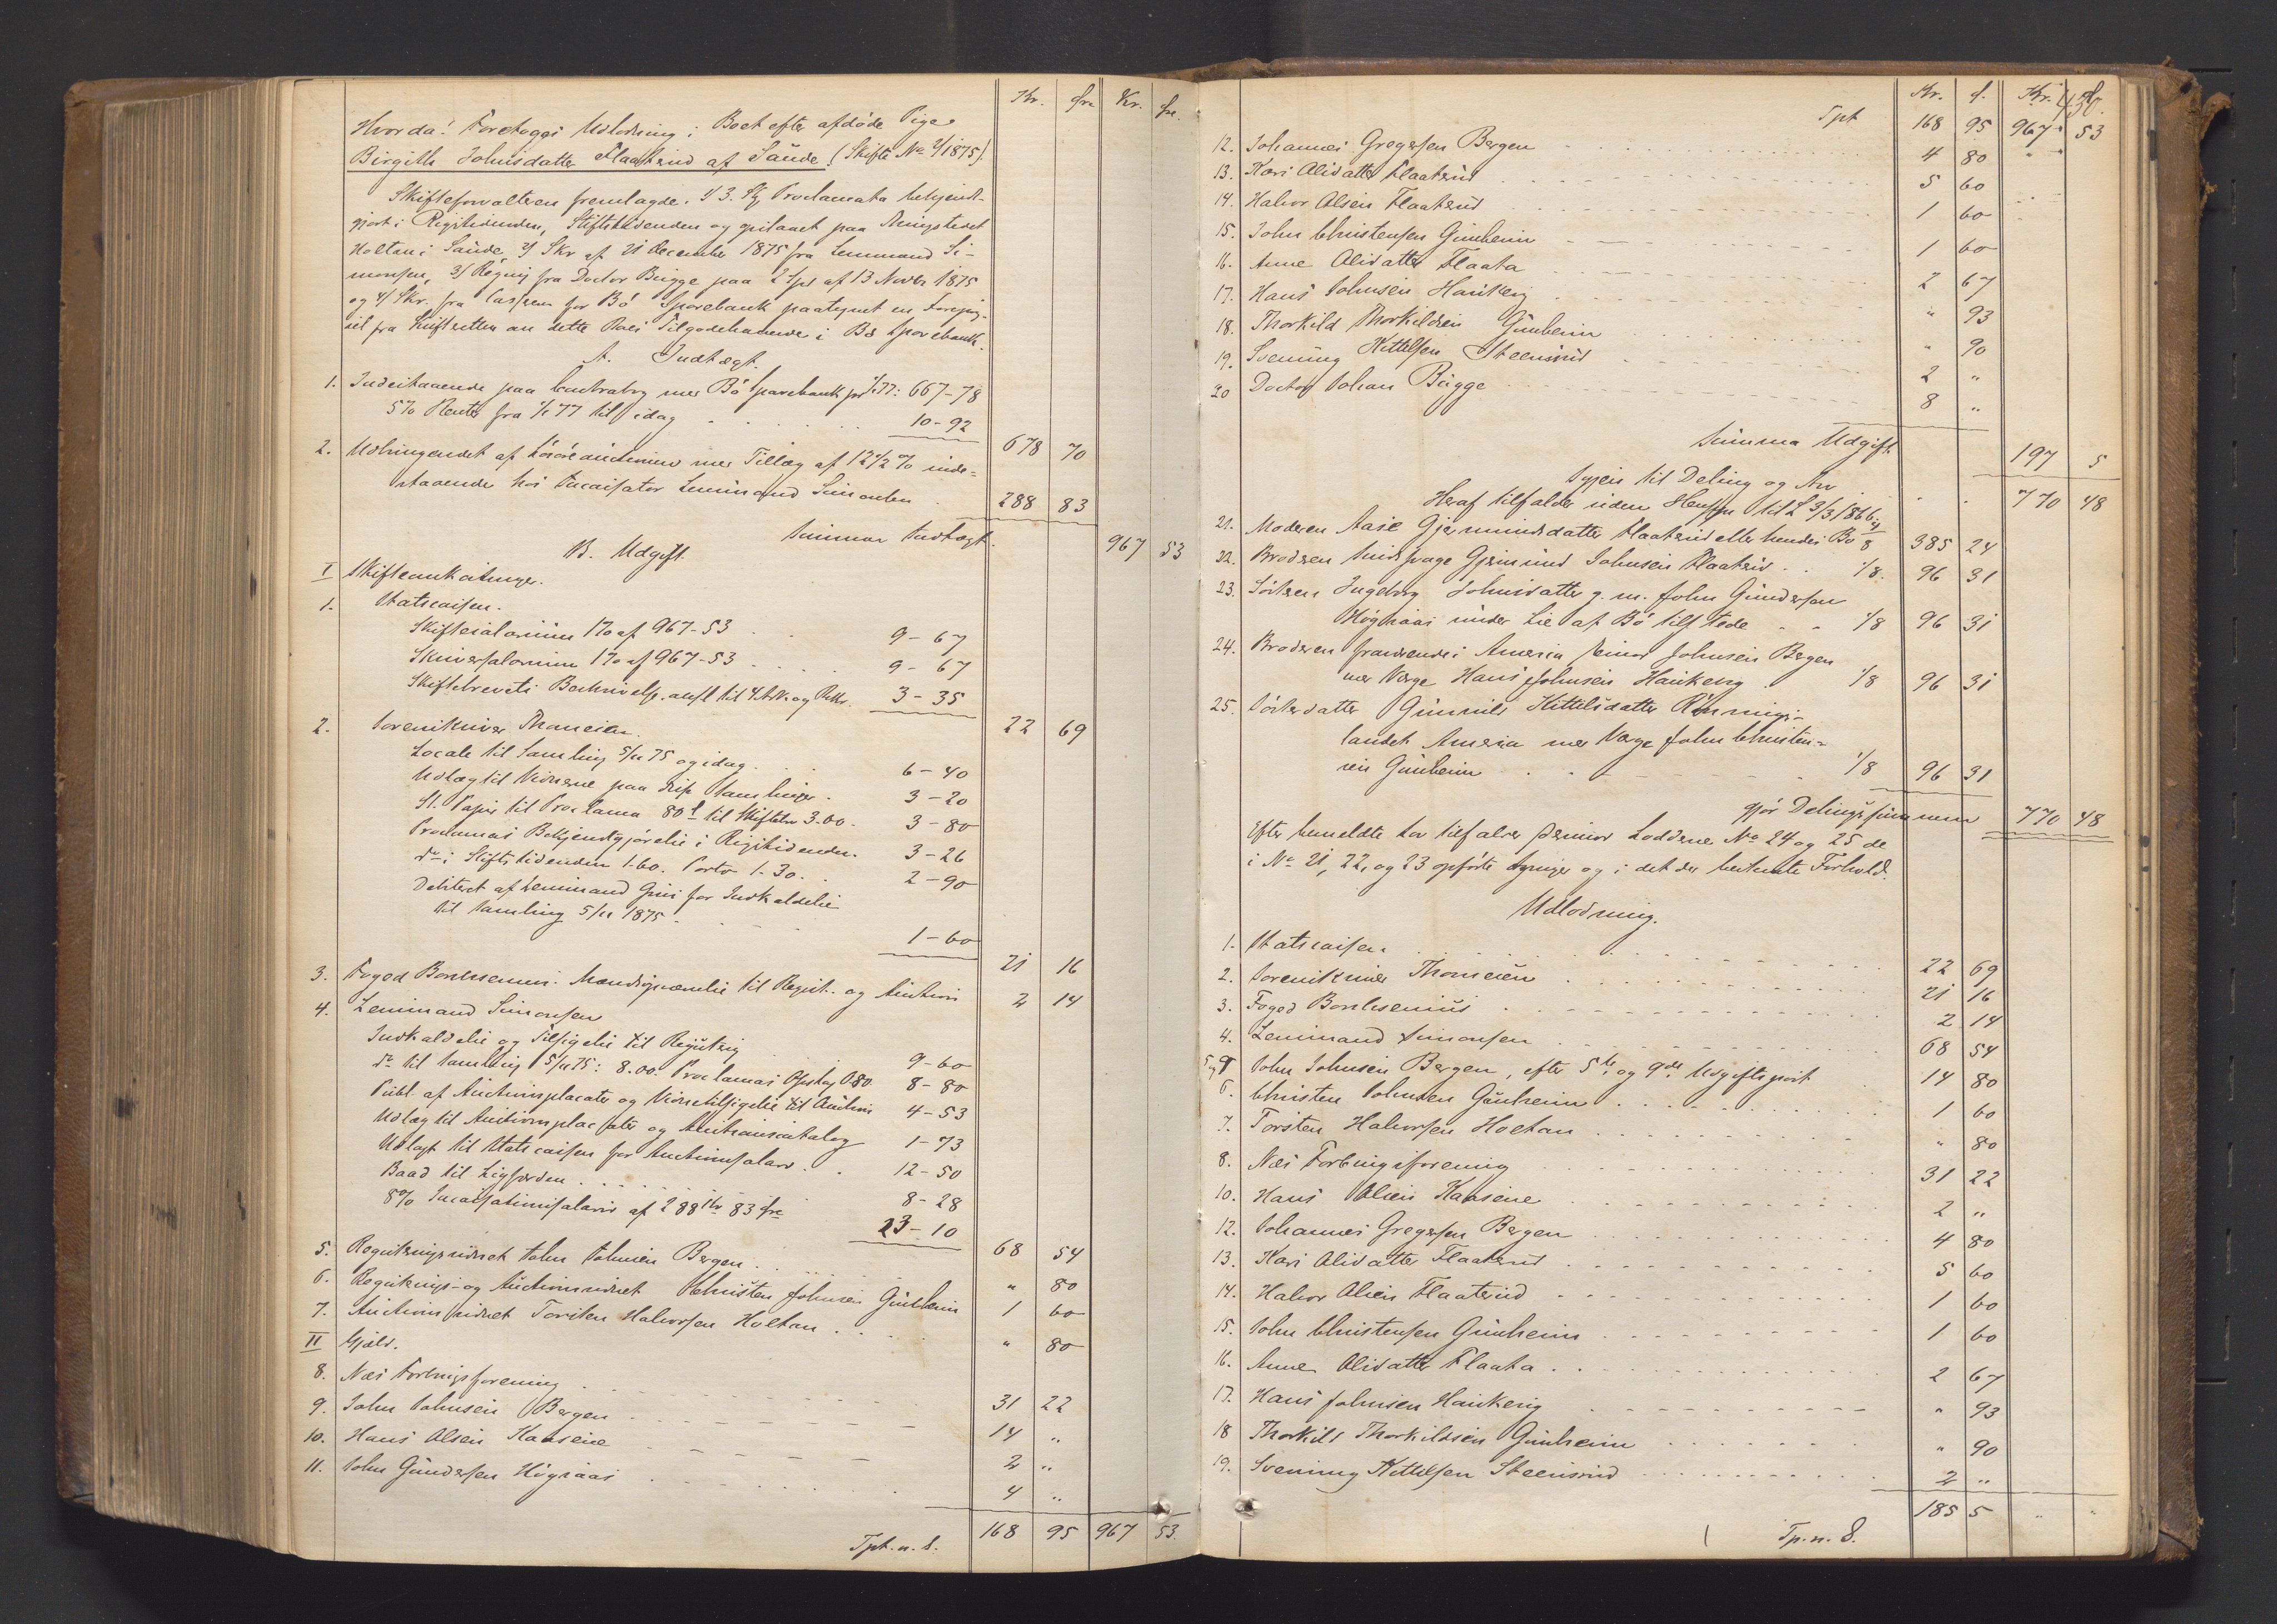 Kr. Øre Kr. Øre.
Hvorda! Foretoges Udlodning i Boet efter afdøde Pige
Birgith Johnsdatter Flaaterud af Saude. (Skifte No 2/1875).
Skifteforvalteren fremlagde. 1/ 3. St Proclamata bekjendt-
gjort i Rigstidenden, Stiftstidenden og opslaaet paa Thingstedet
Holtan i Saude, 2/ Skr af 21 December 1875 fra Lensmand Si-
monsen, 3/ Regning fra Doctor Bugge paa 2 Spd af 13 Novbr 1875
og 4/ Skr. fra Cassreren for Bø Sparebank paategnet en Forespørg-
sel fra Skifteretten om dette Boes Tilgodehavende i Bø Sparebank.
A. Indtægt.
1. Indestaaende paa Contrabog med Bø Sparebank pr 1/1 77: 667-78
5% Renter fra 1/1 77 til idag 10-92
678 70
2. Udbringendet af Løsøreauctionen med Tillæg af 12 1/2 % inde-
staaende hos Incassator Lensmand Simonsen 288 83
Summa Indtægt. 967 53
B. Udgift.
I Skifteomkostninger.
1. Statscassen.
Skiftesalarium 1% af 967-53 9-67
Skriversalarium 1% af 967-53 9-67
Skiftebrevets Beskrivelse, ansl. til 4 Ark og Rekv. 3-35
22 69
2. Sorenskriver Thomesen.
Locale til Samling 5/11 75 og idag 6-40
Udlæg til Vidnerne paa Skifte Samlinger. 3-20
St. Papir til Proclama 80 f til Skiftebr 3.00. 3-80
Proclamas Bekjendtgjørelse i Rigstidenden. 3-26
do i Stiftstidenden 1-60. Porto 1-30. 2-90
Debiteret af Lensmand for Indkaldelse
til Samling 5/11 1875 1-60
21 16
3. Foged Borchsenius. Mændsopnævnelse til Regist. og Auction 2 14
4. Lensmand Simonsen
Indkaldelse og Tilsigelse til Registrering 9-60
do til Samling 5/11 75: 8.00. Proclamas Opslag 0.80. 8-80
Publ. af Auctionsplacater og Vidnetilsigelse til Auction 4-53
Udlæg til Auctionsplacater og Auctionscatalog 1-73
Udlagt til Statscassen for Auctionssalair. 12-50
Baad til Ligfærden 8-28
8% Incassationssalair af 288 Kr 83 Øre 23-10
68 54
5. Registreringsvidnet John Johnsen Bergen " 80
6. Registrerings- og Auctionsvidnet Christen Johnsen Gunheim 1 60
7. Auctionsvidnet Torsten Halvorsen Holtan " 80
II Gjæld.
8. Næs Forbrugsforening 31 22
9. John Johnsen Bergen 14 "
10. Hans Olsen Kaasene 2 "
11. John Gundersen Høgsaas 4 "
Tpt. n. S. 168 95 967 53.
430.
Kr. Ø. Kr. Ø.
Tpt 168 95 967 53
12. Johannes Gregersen Bergen 4 80
13. Kari Olsdatter Flaaterud 5 60
14. Halvor Olsen Flaaterud 1 60
15. John Christensen Gunheim 1 60
16. Anne Olsdatter Flaata 2 67
17. Hans Johnsen Haukeng " 93
18. Thorkild Thorkildsen Gunheim " 90
19. Svenung Kittelsen Steensrud 2 "
20 Doctor Johan Bugge 8 "
Summa Udgift. 197 5
Igjen til Deling og Arv 770 48
Heraf tilfalder uden Hensyn til L 3/3 1866:
21. Moderen Aase Gjermundsdatter Flaaterud eller hendes Bo 4/8 385 24
22. Broderen Sindssvage Gjermund Johnsen Flaaterud 1/8. 96 31
23. Søsteren Ingeborg Johnsdatter g. m. John Gundersen
Høgsaas under Lie af Bø tilstede 1/8 96 31
24. Broderen fraværende i America Peiner Johnsen Bergen
med Værge Hans Johnsen Haukeng 1/8 96 31
25. Søsterdatter Gunnild Kittelsdatter Rønningi-
landet America med Værge John Christen-
sen Gunheim 1/8 96 31
gjør Delingssummen 770 48
Efter bemeldte Lov tilfalder Loddene No 24 og 25 de
i No 21, 22, og 23 opførte Arvinger og i det der bestemte Forhold.
Udlodning.
1. Statscassen 22 69
2. Sorenskriver Thomesen 21 16
3. Foged Borchsenius 2 14
4. Lensmand Simonsen 68 54
5 og 9 John Johnsen Bergen, efter 5te og 9de Udgiftspost 14 80
6. Christen Johnsen Gunheim 1 60
7. Torsten Halvorsen Holtan " 80
8. Næs Forbrugsforening 31 22
10. Hans Olsen Kaasene 2 "
12. Johannes Gregersen Bergen 4 80
13. Kari Olsdatter Flaaterud 5 60
14. Halvor Olsen Flaaterud 1 60
15. John Christensen Gunheim 1 60
16. Anne Olsdatter Flaata 2 67
17. Hans Johnsen Haukeng " 93
18 Thorkild Thorkildsen Gunheim " 90
19. Svenung Kittelsen Steensrud 2 "
Tp. n. S. 185 5 " "